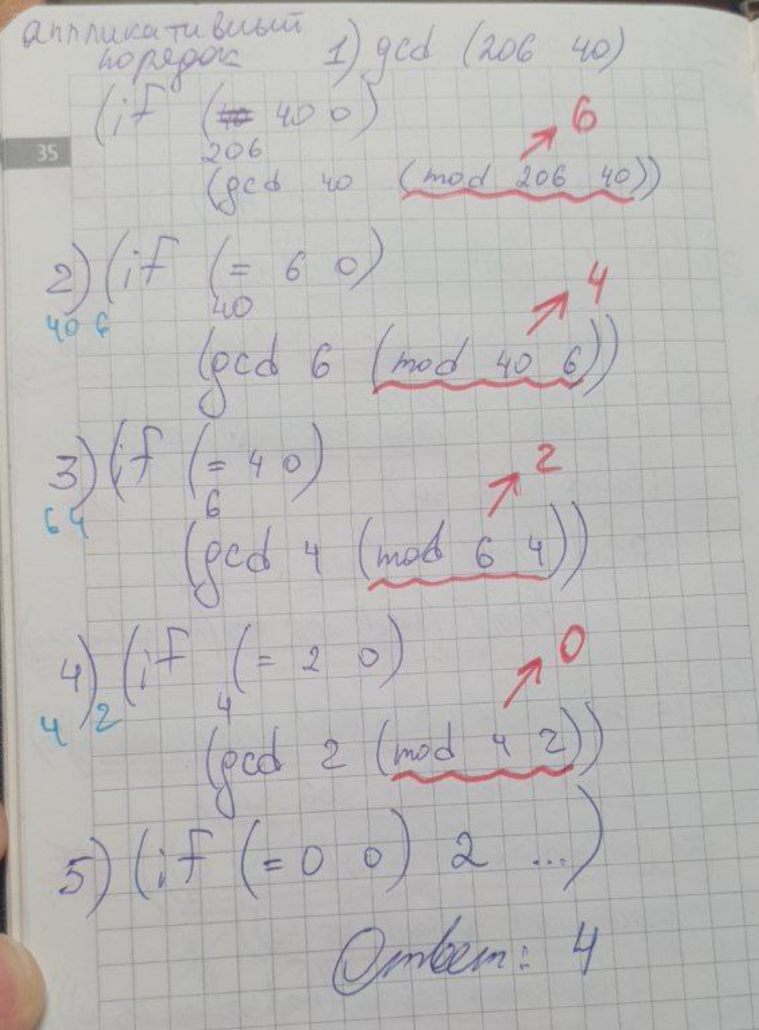 аппликативный
порядок 1) gcd (206 40)
(if (40 0)
206
35
6
(gcd 40 (mod 206 40))
2) (if (= 6 0)
40 6
40
4
(gcd 6 (mod 40 6))
3) (if (= 4 0)
6 4
6
2
(gcd 4 (mod 6 4))
4) (if (= 2 0)
4 2
4
0
(gcd 2 (mod 4 2))
5) (if (= 0 0) 2 ...)
Ответ: 4